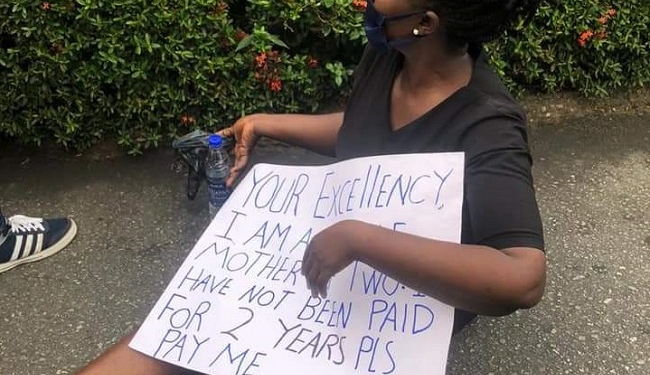 YOUR EXCELLENCY,
I AM A
MOTHER TWO. I
HAVE NOT BEEN PAID
FOR 2 YEARS PLS
PAY ME